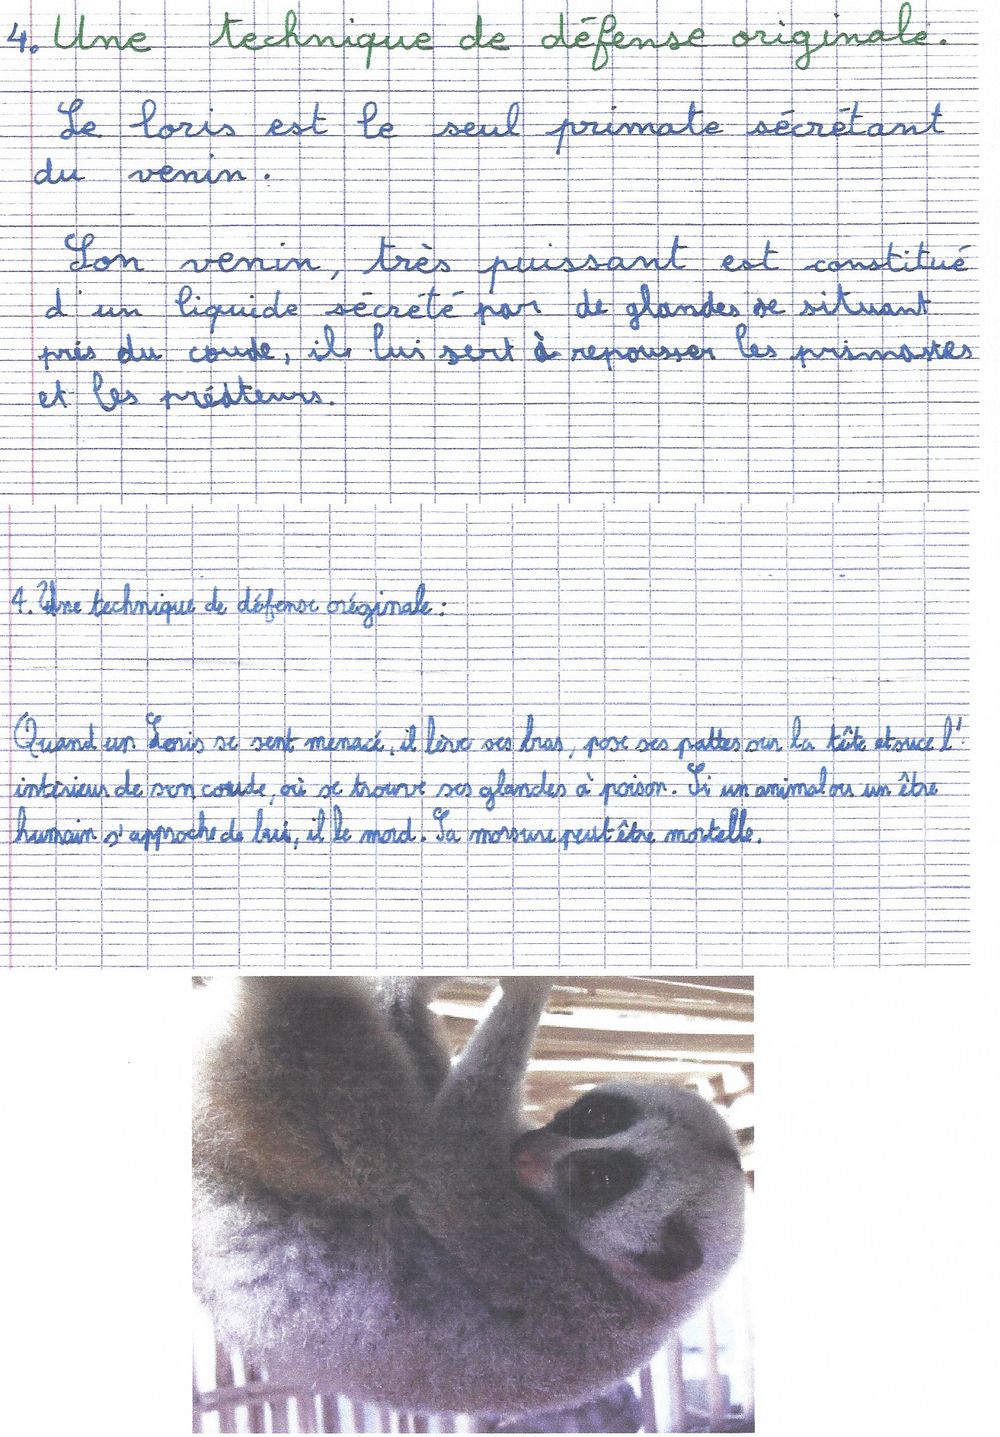 4. Une technique de défense originale.
Le loris est le seul primate sécrétant
du venin.
Son venin, très puissant est constitué
d'un liquide sécrété par de glandes se situant
près du coude, il lui sert à repousser les
et les prédteurs.
4. Une technique de défense originale :
Quand un Loris se sent menacé, il lève ses bras, pose ses pattes sur la tête et suce l'
intérieur de son coude, où se trouve ses glandes à poison. Si un animal ou un être
humain s'approche de lui, il le mord. Sa morsure peut être mortelle.